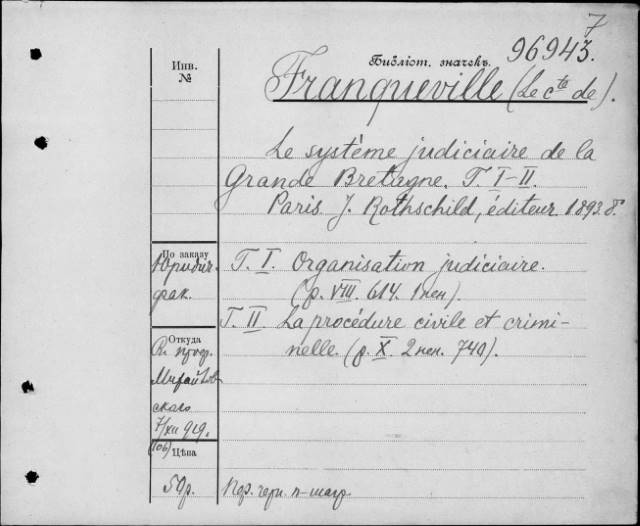 7
Инв.
№
Библіот. значекъ
96943.
Franqueville (Le cte de).
Le système judiciaire de la
Grande Bretagne. T. I-II.
Paris. J. Rothschild, éditeur. 1893. 8°.
По заказу
Юридич.
фак.
T. I. Organisation judiciaire.
(p. VIII. 614. 1 нен).
T. II. La procédure civile et crimi-
nelle. (p. X. 2 нен. 740).
Откуда
7/XII 919.
(106)
Цѣна
50р.